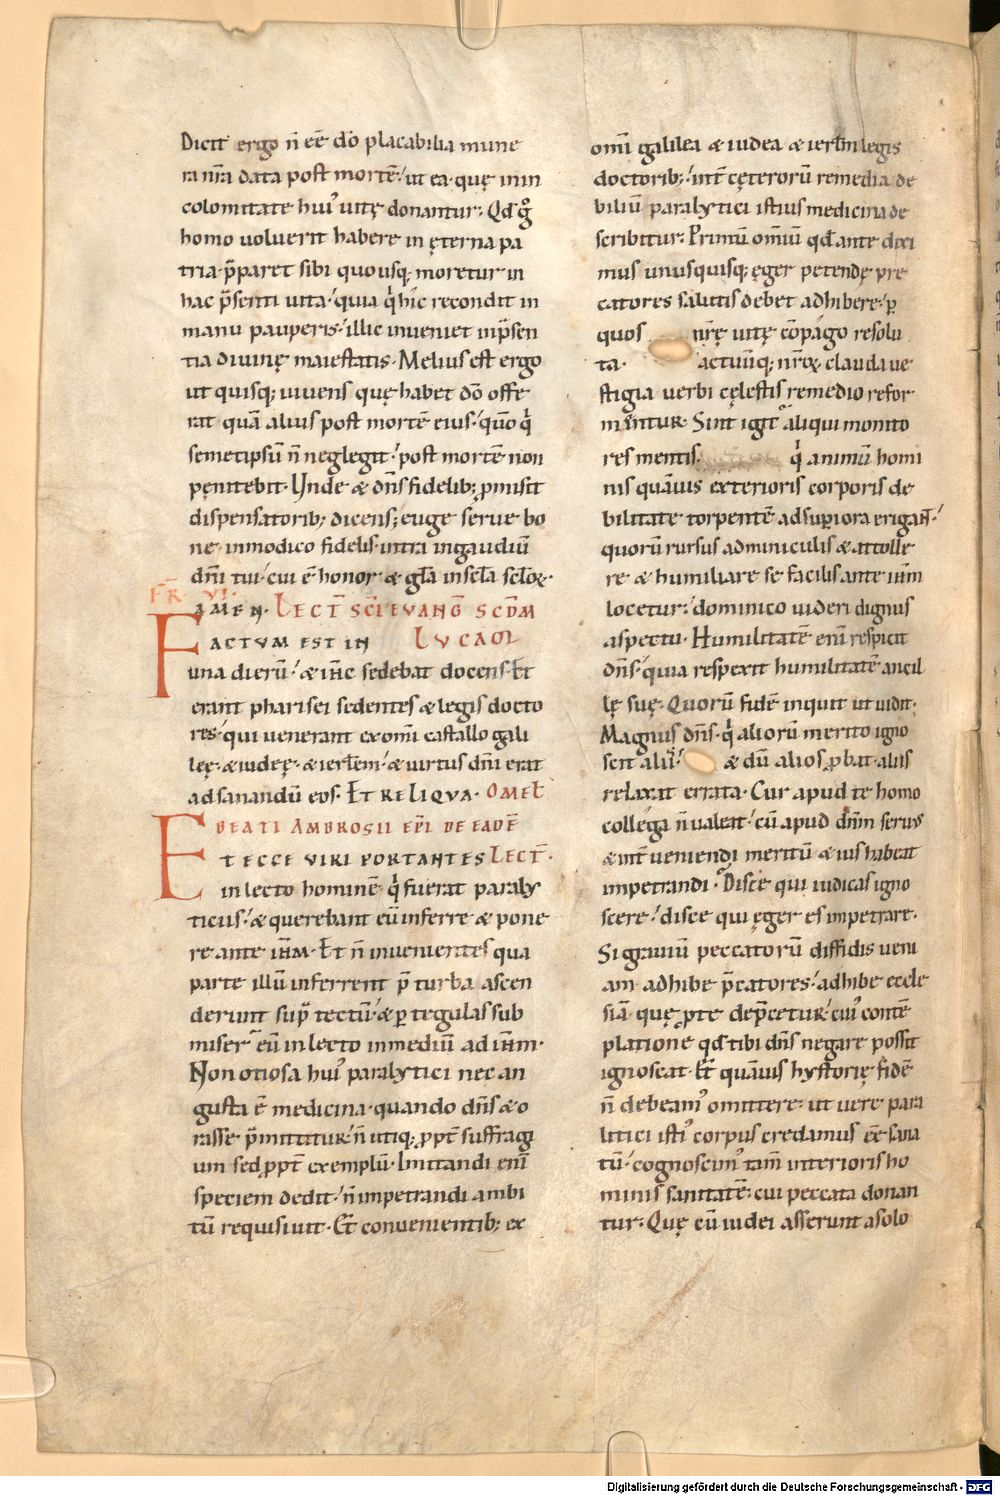 Dicit ergo n̄ eē dō placabilia mune
ra nr̄a data post mortē. ut ea quę in in
colomitate hui' uitę donantur. Qd̄ g̊
homo uoluerit habere in ęterna pa
tria. p̄paret sibi quousq; moretur in
hac p̄senti uita. quia q̇ hic recondit in
manu pauperis. illic inueniet in p̄sen
tia diuinę maiestatis. Melius est ergo
ut quisq; uiuens quę habet dō offe
rat quā alius post mortē eius. quō q̇
semetipsū n̄ neglegit. post mortē non
pęnitebit. Unde & dn̄s fidelib; ꝓmisit
dispensatorib; dicens; euge serue bo
ne in modico fidelis intra in gaudiū
dn̄i tui. cui ē honor & gl̄a in scl̄a scl̄oꝝ.
FR̄ VI.
AMEN. LECT̄ SC̄I EVANḠ SCD̄M
FACTVM EST IN LVCAM
una dierū. & ih̄c sedebat docens. Et
erant pharisei sedentes & legis docto
res. qui uenerant ex omī castello gali
leę. & iudeę. & ierl̄em. & uirtus dn̄i erat
ad sanandū eos. ET RELIQVA. OMEL̄
BEATI AMBROSII EP̄I DE EADĒ
ET ECCE VIRI PORTANTES LECT̄.
in lecto hominē q̇ fuerat paraly
ticus. & querebant eū inferre & pone
re ante ih̄m. Et n̄ inuenientes qua
parte illū inferrent p̄ turba ascen
derunt sup̄ tectū. & ꝑ tegulas sub
miser̄ eū in lecto in mediū ad ih̄m.
Non otiosa hui' paralytici nec an
gusta ē medicina. quando dn̄s & o
rasse p̄mittitur. n̄ utiq; ꝓpt̄ suffragi
um sed ꝓpt̄ exemplū. Imitandi enī
speciem dedit. n̄ impetrandi ambi
tū requisiuit. Et conuenientib; ex
omī galilea & iudea & ierl̄m legis
doctorib; int̄ cęterorū remedia de
biliū paralytici istius medicina de
scribitur. Primū omīū qd̄ ante dixi
mus unusquisq; ęger petendę pre
catores salutis debet adhibere. ꝑ
quos nr̄ę uitę cōpago resolu
ta. actuūq; nr̄oꝝ clauda ue
stigia uerbi cęlestis remedio refor
mentur. Sint igit̄ aliqui monito
res mentis. q̇ animū homi
nis quāuis exterioris corporis de
bilitate torpentē ad supiora erigan̄t.
quorū rursus adminiculis & attolle
re & humiliare se facilis ante ih̄m
locetur. dominico uideri dignus
aspectu. Humilitatē enī respicit
dn̄s. quia respexit humilitatē ancil
lę suę. Quorū fidē inquit ut uidit.
Magnus dn̄s. q̇ aliorū merito igno
scit aliis. & dū alios ꝓbat. aliis
relaxat errata. Cur apud te homo
collega n̄ ualeat. cū apud dn̄m seruus
& int̄ueniendi meritū & ius habeat
impetrandi. Disce qui iudicas igno
scere. disce qui ęger es impetrare.
Si grauiū peccatorū diffidis ueni
am adhibe p̄catores. adhibe eccle
siā quę ꝓ te dep̄cetur. cui' contē
platione qd̄ tibi dn̄s negare possit
ignoscat. Et quāuis hystorię fidē
n̄ debeam' omittere. ut uere para
litici isti' corpus credamus eē sana
tū. cognoscim' tam̄ interioris ho
minis sanitatē. cui peccata donan
tur. Quę cū iudei asserunt a solo
Digitalisierung gefördert durch die Deutsche Forschungsgemeinschaft - DFG